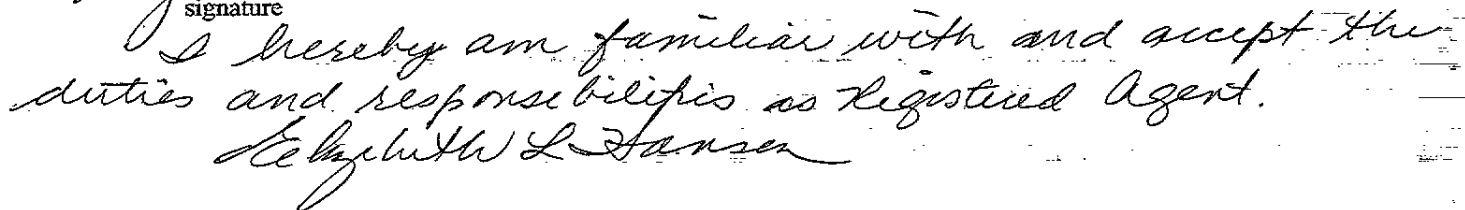 signature
I hereby am familiar with and accept the
duties and responsibilities as Registered Agent.
Elizabeth L Hansen